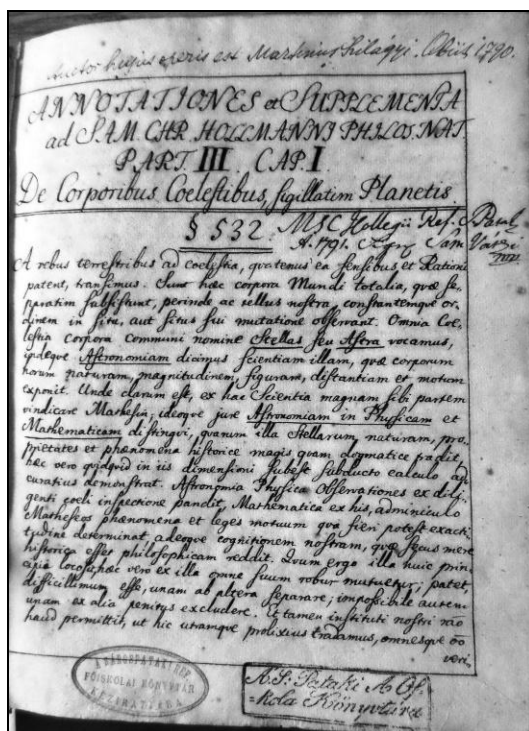 Auctor hujus operis est Martinus Szilágyi. Obiit 1790.
ANNOTATIONES et SUPPLEMENTA
ad SAM. CHR. HOLLMANNI PHILOS. NAT.
PART. III CAP. I
De Corporibus Coelestibus, sigillatim Planetis
§ 532. MSC Collegii Ref. S. Patak
A. 1791. Sam
A rebus terrestribus ad coelestia, quatenus ea sensibus et Rationi
patent, transimus. Sunt hæc corpora Mundi totalia, quæ se,
paratim subsistunt, perinde ac tellus nostra, constantemque or,
dinem in situ, aut situs sui mutatione observant. Omnia Coe,
lestia corpora communi nomine Stellas seu Astra vocamus,
indeque Astronomiam dicimus scientiam illam, quæ corporum
horum naturam, magnitudinem, figuram, distantiam et motum
exponit. Unde clarum est, ex hac Scientia magnam sibi partem
vindicare Mathesin; ideoque jure Astronomiam in Physicam et
Mathematicam distingvi, quarum illa Stellarum naturam, pro,
prietates et phænomena historice magis quam dogmatice tradit,
hæc vero quidquid in iis dimensioni subest subducto calculo ac
curatius demonstrat. Astronomia Physica Observationes ex dili,
genti coeli inspectione pandit, Mathematica ex his, adminiculo
Matheseos phænomena et leges motuum qvá fieri potest exacti
tudine determinat, adeoque cognitionem nostram, quæ secus mere
historica esset philosophicam reddit. Qvum ergo illa huic prin,
cipia locet, hæc vero ex illa omne suum robur mutuetur; patet,
difficillimum esse, unam ab altera separare; impossibile autem
unam ex alia penitus excludere. Et tamen instituti nostri rão
haud permittit, ut hic utramque prolixius tradamus, omnesque oo
veri,
A SÁROSPATAKI REF.
FŐISKOLAI KÖNYVTÁR
KÉZIRATTÁRA
A. S. Pataki A. Of-
kola Könyvtára